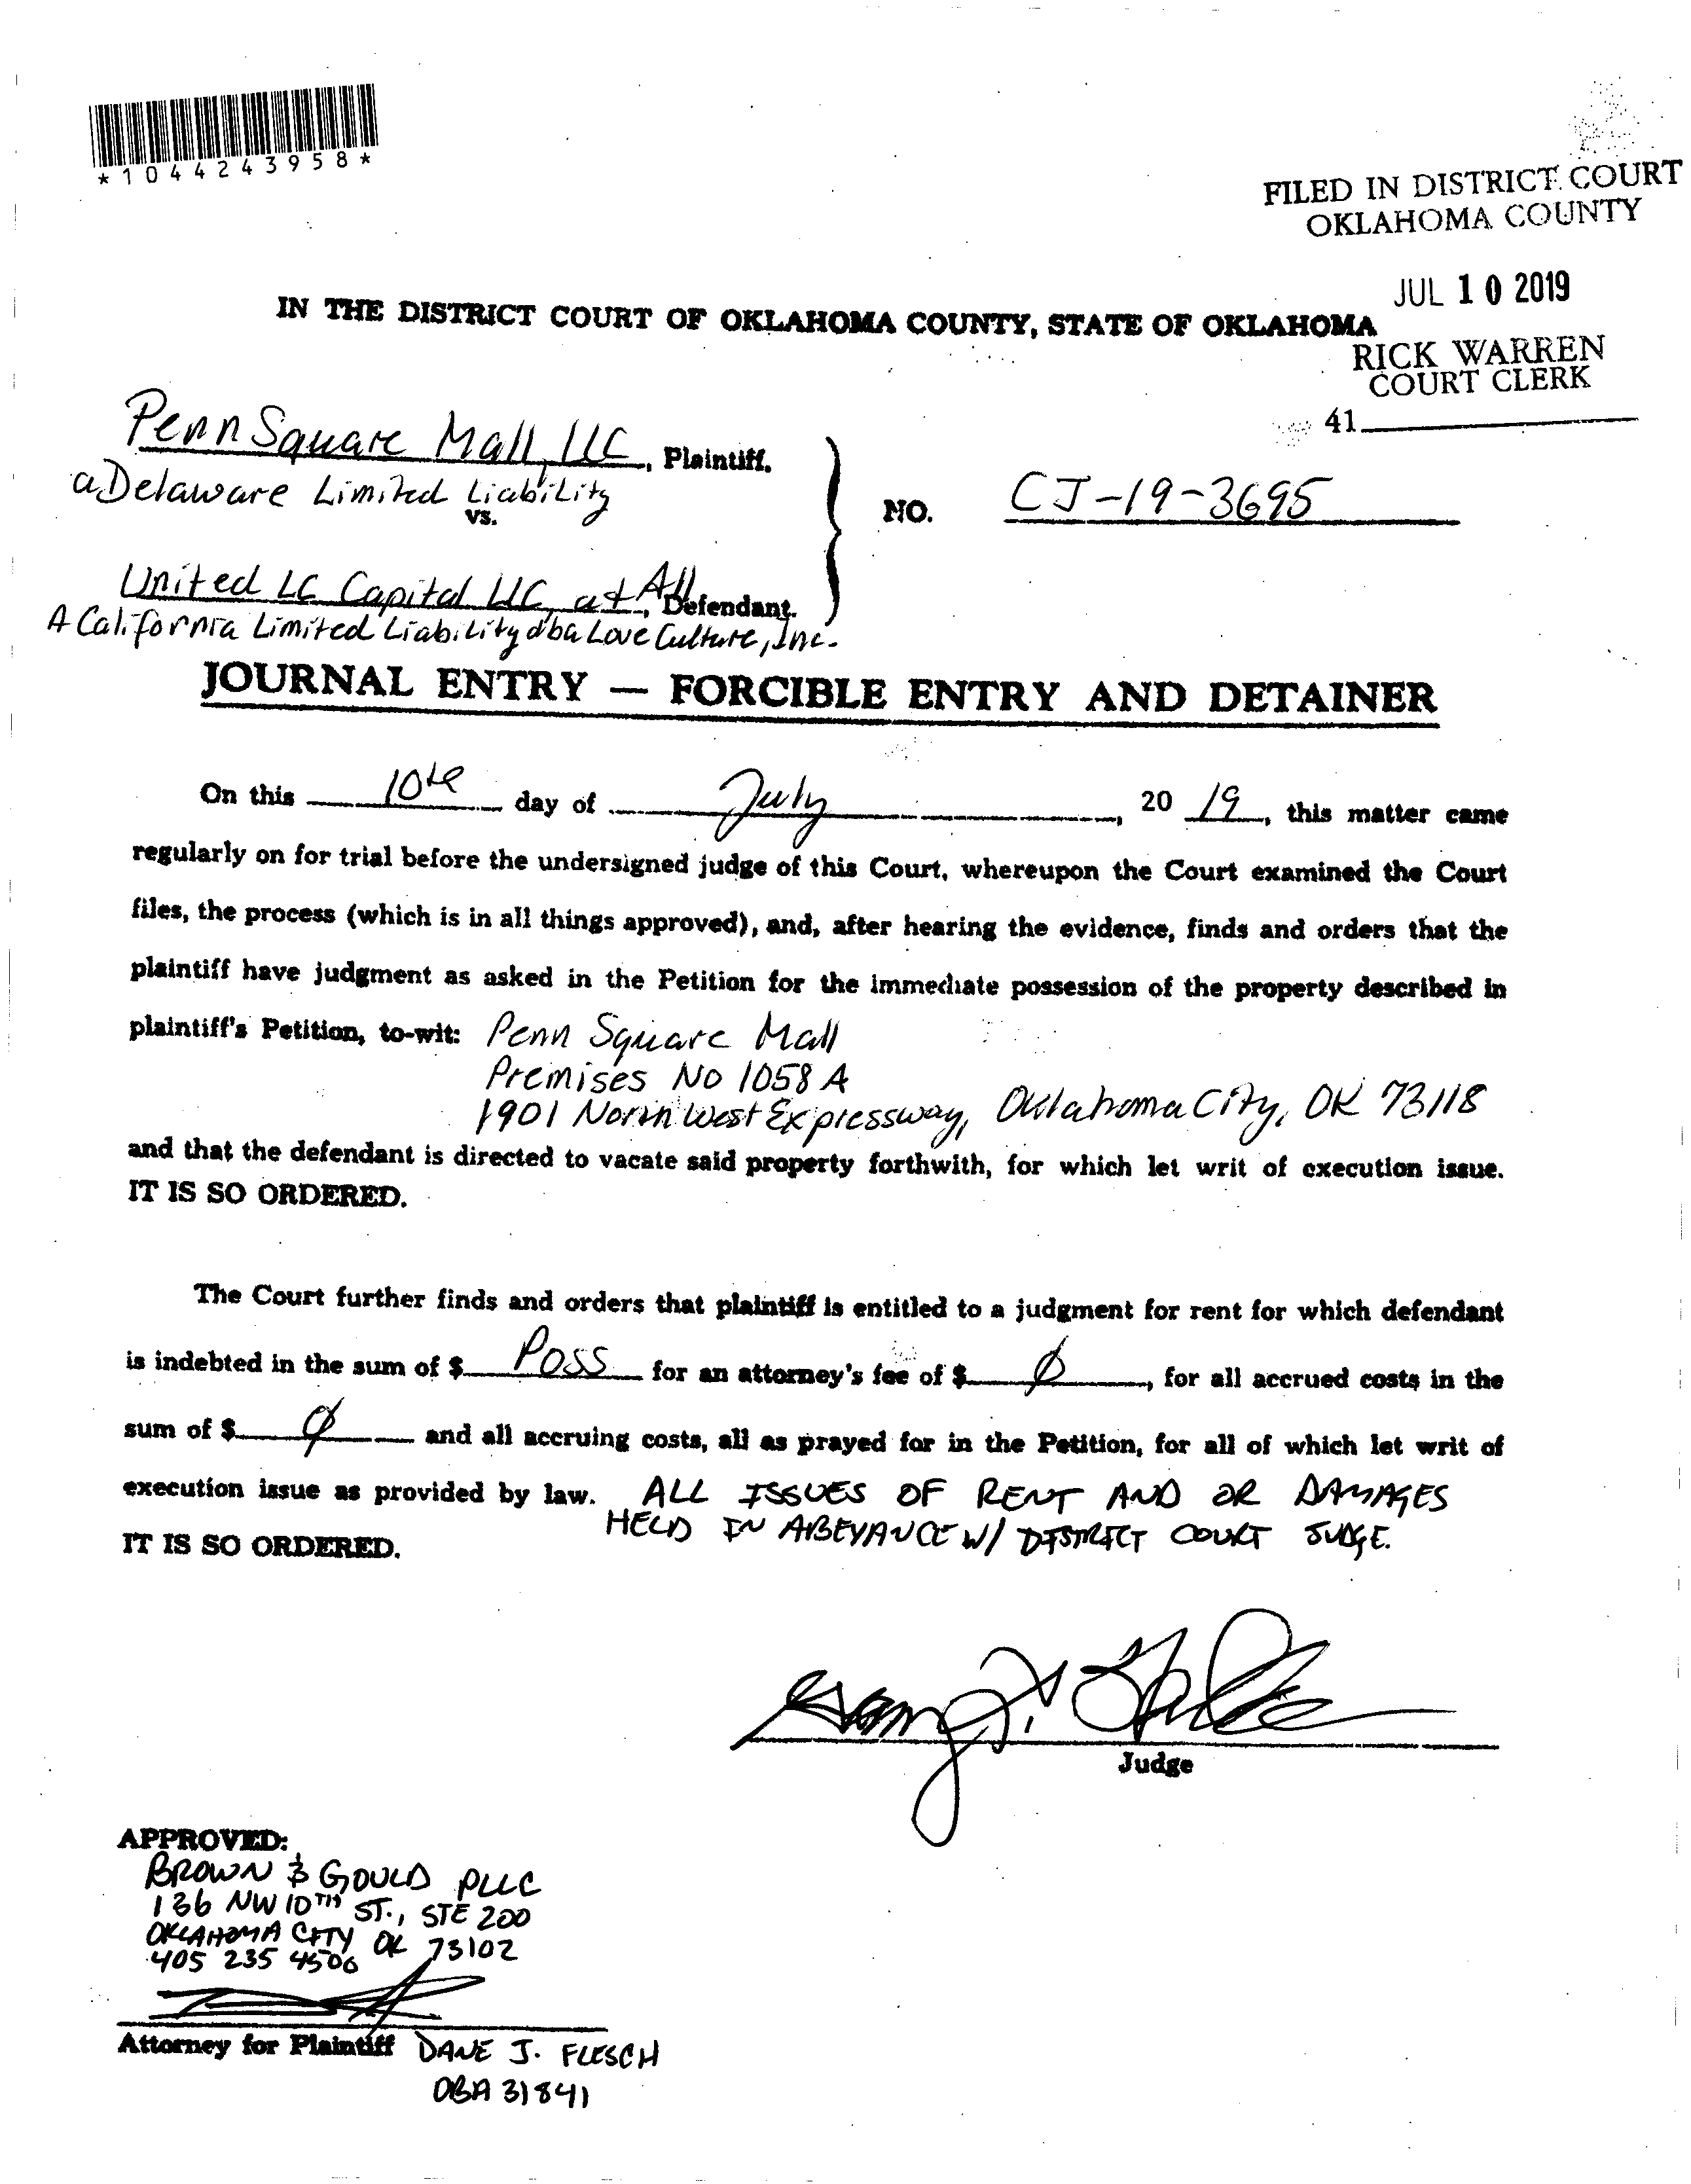 *1044243958*
FILED IN DISTRICT COURT
OKLAHOMA COUNTY
JUL 10 2019
IN THE DISTRICT COURT OF OKLAHOMA COUNTY, STATE OF OKLAHOMA
RICK WARREN
COURT CLERK
41
Penn Square Mall, LLC, Plaintiff,
a Delaware Limited Liability
vs.
NO. CJ-19-3695
United LC Capital LLC, at All, Defendant.
A California Limited Liability dba Love Culture, Inc.
JOURNAL ENTRY — FORCIBLE ENTRY AND DETAINER
On this 10th day of July, 20 19, this matter came
regularly on for trial before the undersigned judge of this Court, whereupon the Court examined the Court
files, the process (which is in all things approved), and, after hearing the evidence, finds and orders that the
plaintiff have judgment as asked in the Petition for the immediate possession of the property described in
plaintiff's Petition, to-wit: Penn Square Mall
Premises No 1058 A
1901 North West Expressway, Oklahoma City, OK 73118
and that the defendant is directed to vacate said property forthwith, for which let writ of execution issue.
IT IS SO ORDERED.
The Court further finds and orders that plaintiff is entitled to a judgment for rent for which defendant
is indebted in the sum of $ Poss for an attorney's fee of $ Ø, for all accrued costs in the
sum of $ Ø and all accruing costs, all as prayed for in the Petition, for all of which let writ of
execution issue as provided by law. ALL ISSUES OF RENT AND OR DAMAGES
HELD IN ABEYANCE W/ DISTRICT COURT JUDGE.
IT IS SO ORDERED.
Judge
APPROVED:
BROWN & GOULD PLLC
136 NW 10TH ST., STE 200
OKLAHOMA CITY OK 73102
405 235 4500
Attorney for Plaintiff DANE J. FLESCH
OBA 31841